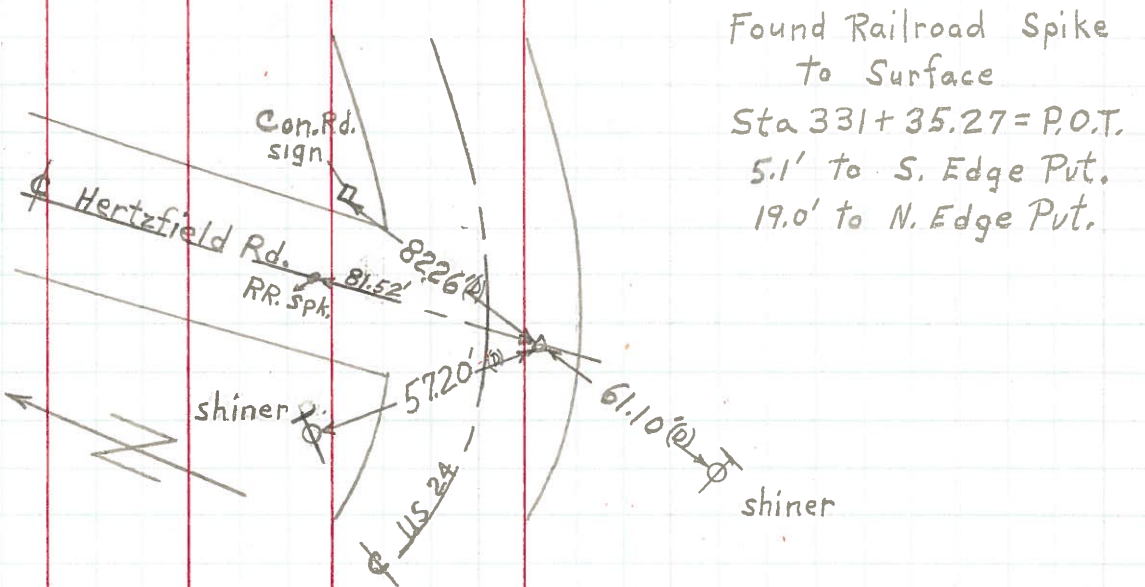 Found Railroad Spike
to Surface
Sta 331+35.27 = P.O.T.
5.1' to S. Edge Pvt.
19.0' to N. Edge Pvt.
Con. Rd.
sign
℄ Hertzfield Rd.
82.26'(D)
81.52'
RR. Spk.
57.20'(D)
shiner
61.10'(D)
shiner
℄ US 24